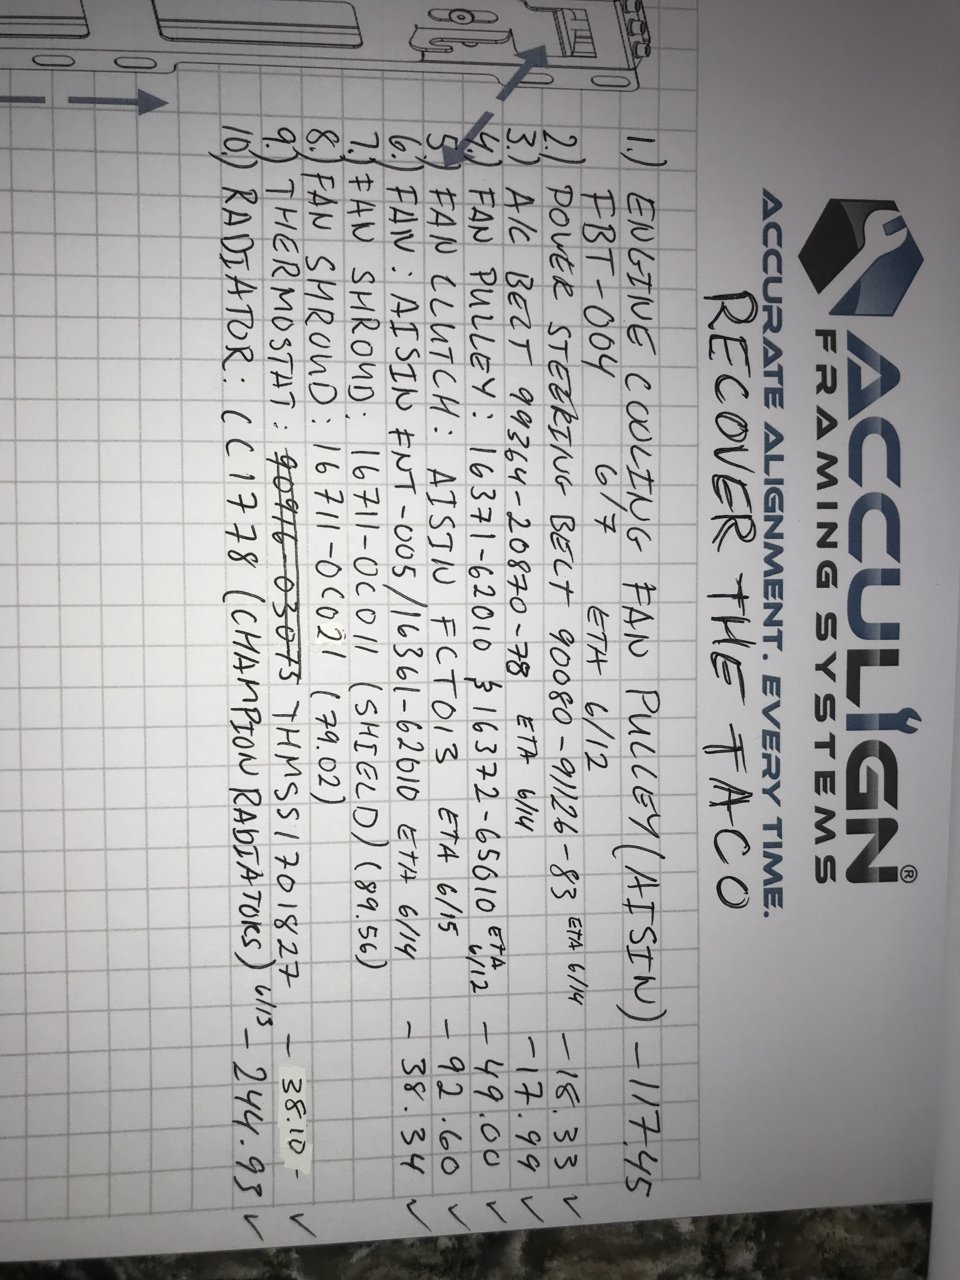 ACCULIGN®
FRAMING SYSTEMS
ACCURATE ALIGNMENT. EVERY TIME.
RECOVER THE TACO
1.) ENGINE COOLING FAN PULLEY (AISIN) - 117.45
FBT-004 6/7 ETA 6/12
2.) POWER STEERING BELT 90080-91126-83 ETA 6/14 - 18.33 ✓
3.) A/C BELT 99364-20870-78 ETA 6/14 - 17.99 ✓
4.) FAN PULLEY: 16371-62010 & 16372-65010 ETA 6/12 - 49.00 ✓
5.) FAN CLUTCH: AISIN FCT013 ETA 6/15 - 92.60 ✓
6.) FAN: AISIN FNT-005/16361-62010 ETA 6/14 - 38.34 ✓
7.) FAN SHROUD: 16711-0C011 (SHIELD) (89.56)
8.) FAN SHROUD: 16711-0C021 (79.02)
9.) THERMOSTAT: 90916-03075 THMSS1701827 - 38.10 - ✓
10.) RADIATOR: CC1778 (CHAMPION RADIATORS) 6/13 - 244.93 ✓